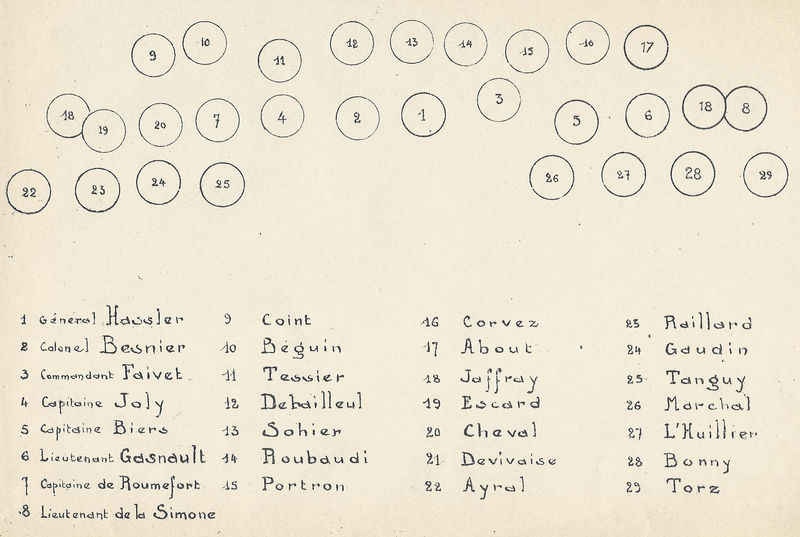 9 10 11 12 13 14 15 16 17
18 19 20 7 4 2 1 3 5 6 18 8
22 23 24 25 26 27 28 29
1 Général Hassler
2 Colonel Besnier
3 Commandant Faivet
4 Capitaine Joly
5 Capitaine Biers
6 Lieutenant Gasnault
7 Capitaine de Roumefort
8 Lieutenant de la Simone
9 Coint
10 Béguin
11 Tessier
12 Debailleul
13 Sohier
14 Roubaudi
15 Portron
16 Corvez
17 About
18 Jaffray
19 Escard
20 Cheval
21 Devivaise
22 Ayral
23 Raillard
24 Gaudin
25 Tanguy
26 Marchal
27 L'Huillier
28 Bonny
29 Torz